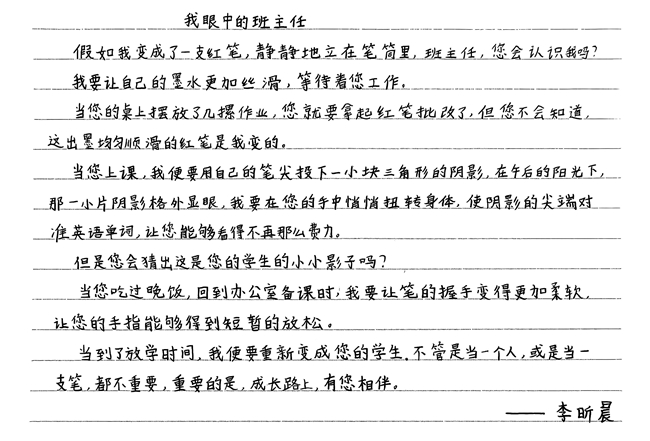 我眼中的班主任
假如我变成了一支红笔，静静地立在笔筒里，班主任，您会认识我吗？
我要让自己的墨水更加丝滑，等待着您工作。
当您的桌上摆放了几摞作业，您就要拿起红笔批改了，但您不会知道，
这出墨均匀顺滑的红笔是我变的。
当您上课，我便要用自己的笔尖投下一小块三角形的阴影，在午后的阳光下，
那一小片阴影格外显眼，我要在您的手中悄悄扭转身体，使阴影的尖端对
准英语单词，让您能够看得不再那么费力。
但是您会猜出这是您的学生的小小影子吗？
当您吃过晚饭，回到办公室备课时，我要让笔的握手变得更加柔软，
让您的手指能够得到短暂的放松。
当到了放学时间，我便要重新变成您的学生。不管是当一个人，或是当一
支笔，都不重要，重要的是，成长路上，有您相伴。
——李昕晨